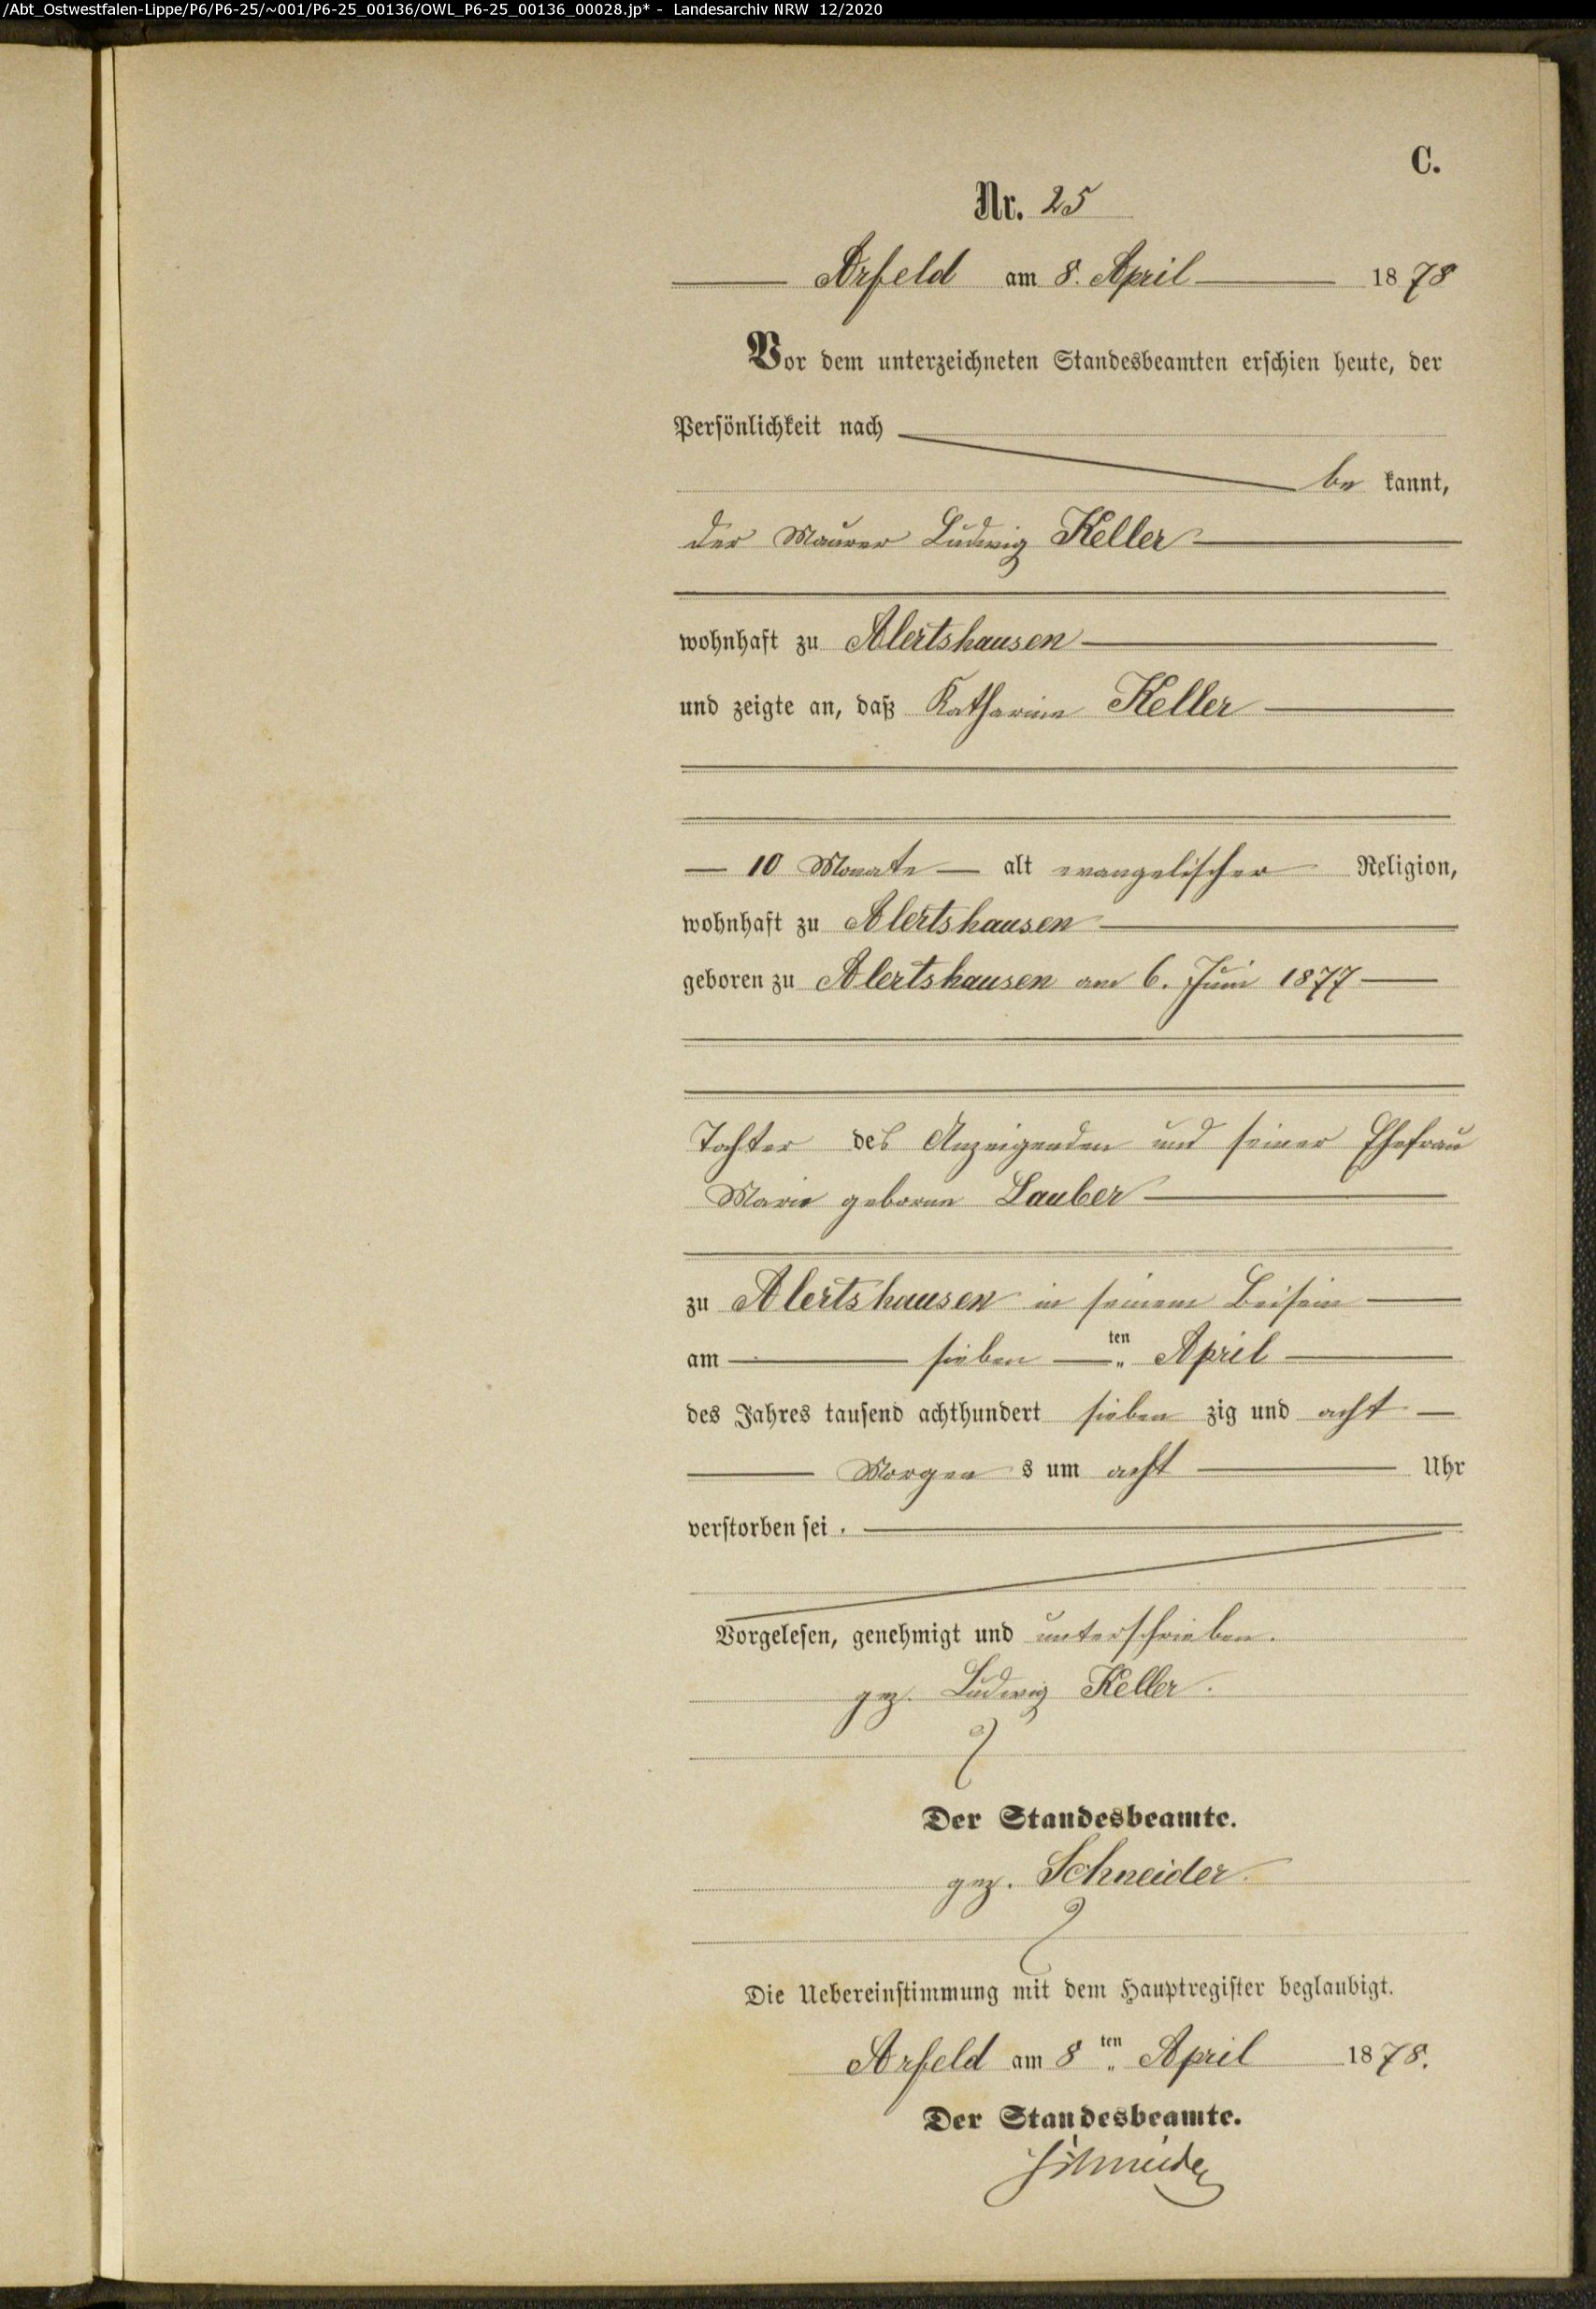 /Abt_Ostwestfalen-Lippe/P6/P6-25/~001/P6-25_00136/OWL_P6-25_00136_00028.jp* - Landesarchiv NRW 12/2020
C.
Nr. 25
Arfeld am 8. April 1878
Vor dem unterzeichneten Standesbeamten erschien heute, der
Persönlichkeit nach
be kannt,
der Maurer Ludwig Keller
wohnhaft zu Alertshausen
und zeigte an, daß Katharine Keller
10 Monate alt evangelischer Religion,
wohnhaft zu Alertshausen
geboren zu Alertshausen am 6. Juni 1877
Tochter des Anzeigenden und seiner Ehefrau
Marie geborne Lauber
zu Alertshausen in seinem Beisein
am sieben ten April
des Jahres tausend achthundert sieben zig und acht
Morgen s um acht Uhr
verstorben sei.
Vorgelesen, genehmigt und unterschrieben.
gez. Ludwig Keller.
Der Standesbeamte.
gez. Schneider.
Die Uebereinstimmung mit dem Hauptregister beglaubigt.
Arfeld am 8 ten April 1878.
Der Standesbeamte.
Schneider